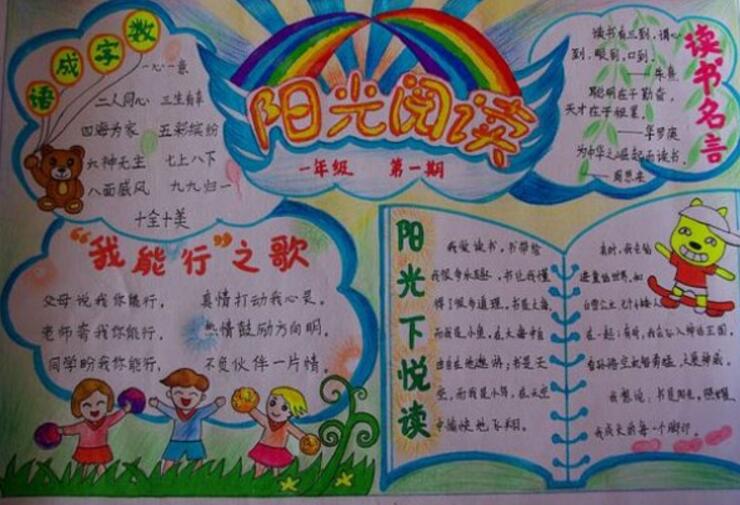 数字成语
一心一意
二人同心 三生有幸
四海为家 五彩缤纷
六神无主 七上八下
八面威风 九九归一
十全十美
阳光阅读
一年级 第一期
读书名言
读书有三到,谓心
到,眼到,口到。
——朱熹
聪明在于勤奋,
天才在于积累。
——华罗庚
为中华之崛起而读书。
——周恩来
“我能行”之歌
父母说我你能行, 真情打动我心灵。
老师寄我你能行, 热情鼓励方向明。
同学盼我你能行, 不负伙伴一片情。
阳光下悦读
我爱读书,书带给
我很多乐趣,书也我懂
得了很多道理。书是大海,
而我是小鱼,在大海中自
由自在地遨游;书是天
空,而我是小鸟,在天空
中愉快地飞翔。
有时,我会
进童话世界,和
白雪公主、七个小矮人
在一起;有时,我会
我想说:书是阳光,照耀
我成长的每一个脚印。